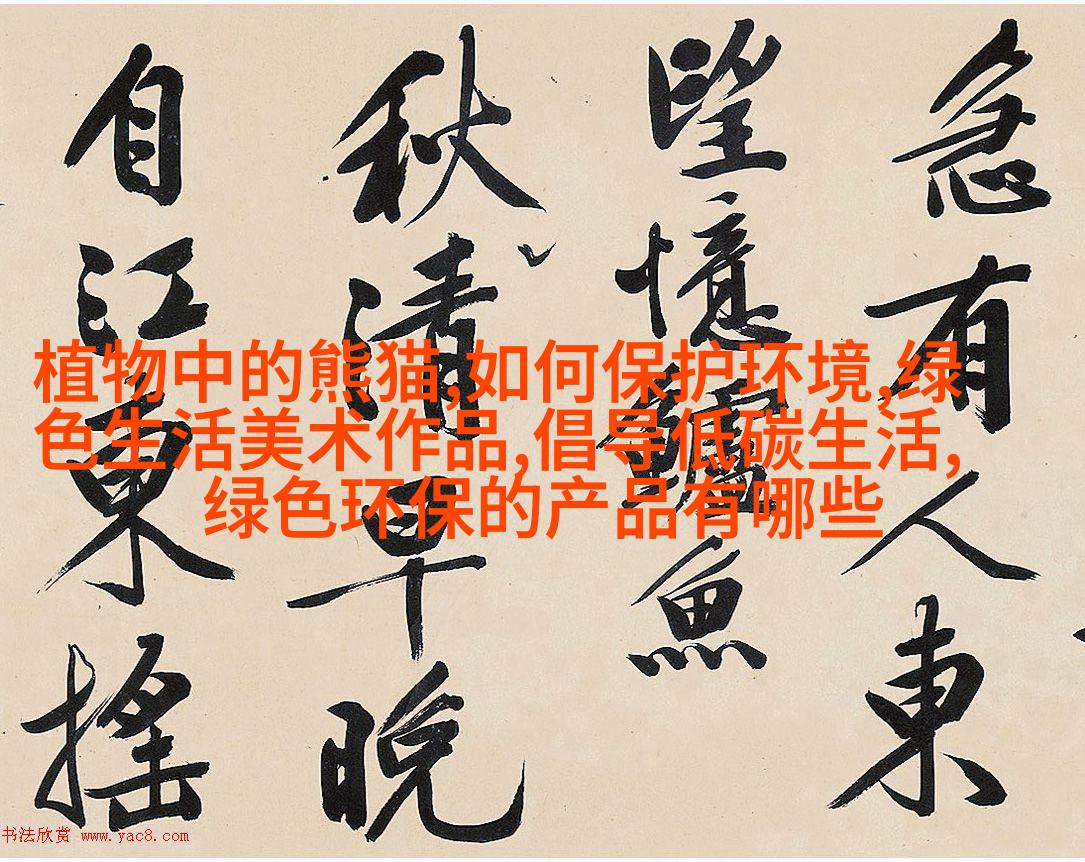 急有人東
望憶鱸魚
秋清早晚
自江東搖
植物中的熊猫,如何保护环境,绿
色生活美术作品,倡导低碳生活,
绿色环保的产品有哪些
书法欣赏 www.yac8.com